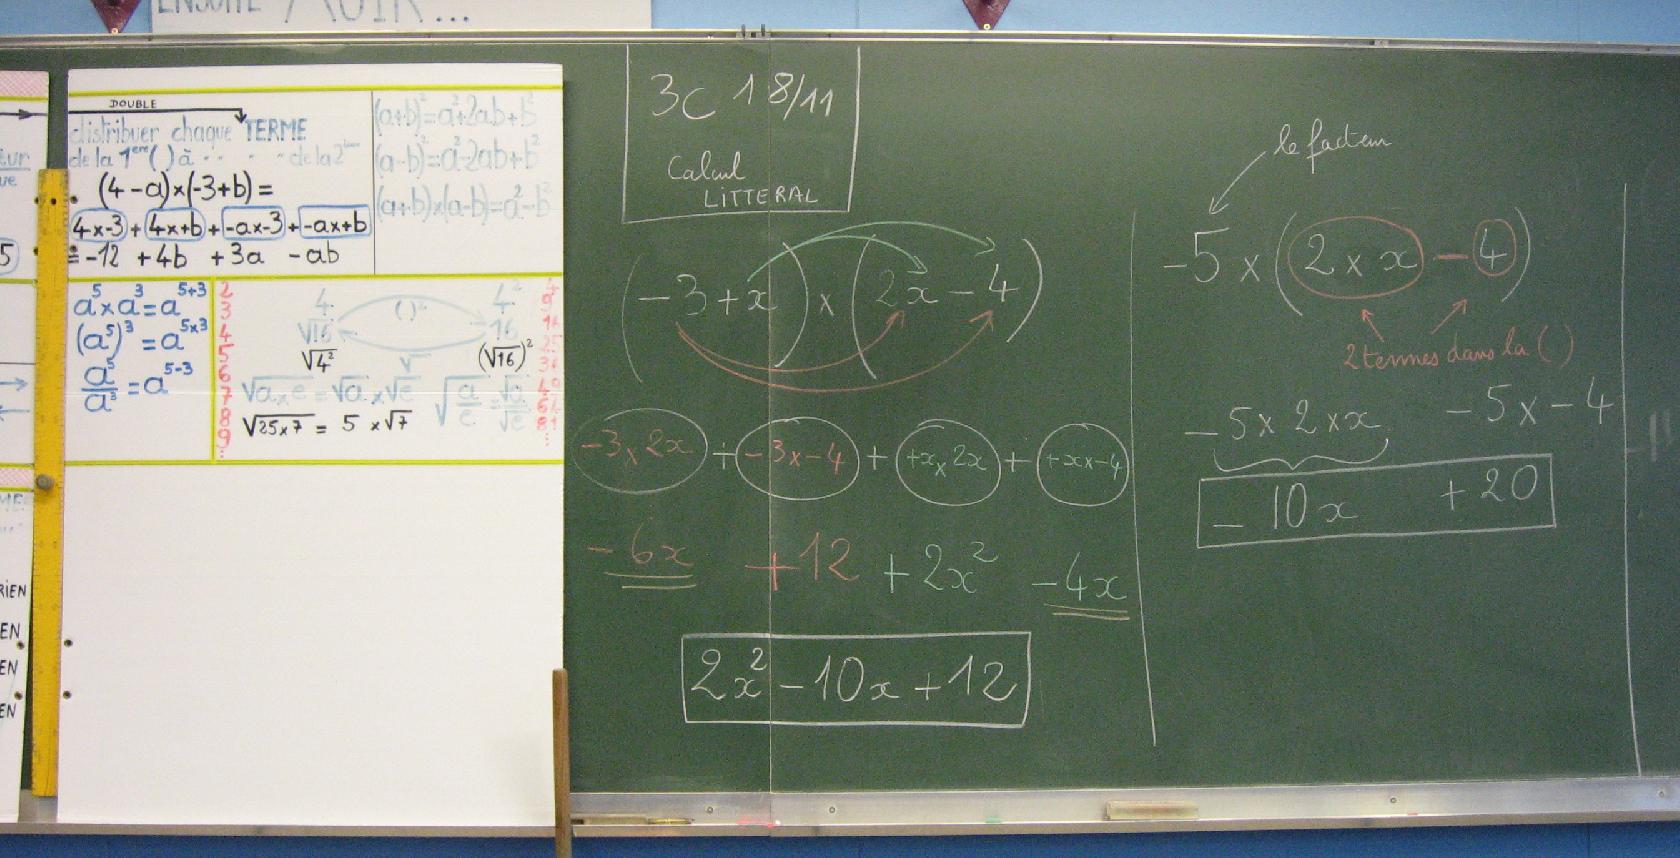 ENSUITE
DOUBLE
distribuer chaque TERME
de la 1ère ( ) à · · · · de la 2ème
(4-a)×(-3+b)=
4×-3 + 4×+b + -a×-3 + -a×+b
= -12 +4b +3a -ab
(a+b)²=a²+2ab+b²
(a-b)²=a²-2ab+b²
(a+b)×(a-b)=a²-b²
a⁵×a³=a⁵⁺³
(a⁵)³=a⁵ˣ³
a⁵/a³=a⁵⁻³
2
3
4
5
6
7
8
9
4 ( )² 4²
√16 16
√4² √ (√16)²
√a×e = √a × √e √(a/e) = √a/√e
√25×7 = 5 ×√7
4
9
16
25
36
49
64
81
5
RIEN
EN
EN
EN
3C 18/11
Calcul
LITTERAL
(-3+x)×(2x-4)
-3×2x + -3×-4 + +x×2x + +x×-4
-6x +12 +2x² -4x
2x²-10x+12
le facteur
-5×(2×x-4)
2 termes dans la ( )
-5×2×x -5×-4
-10x +20